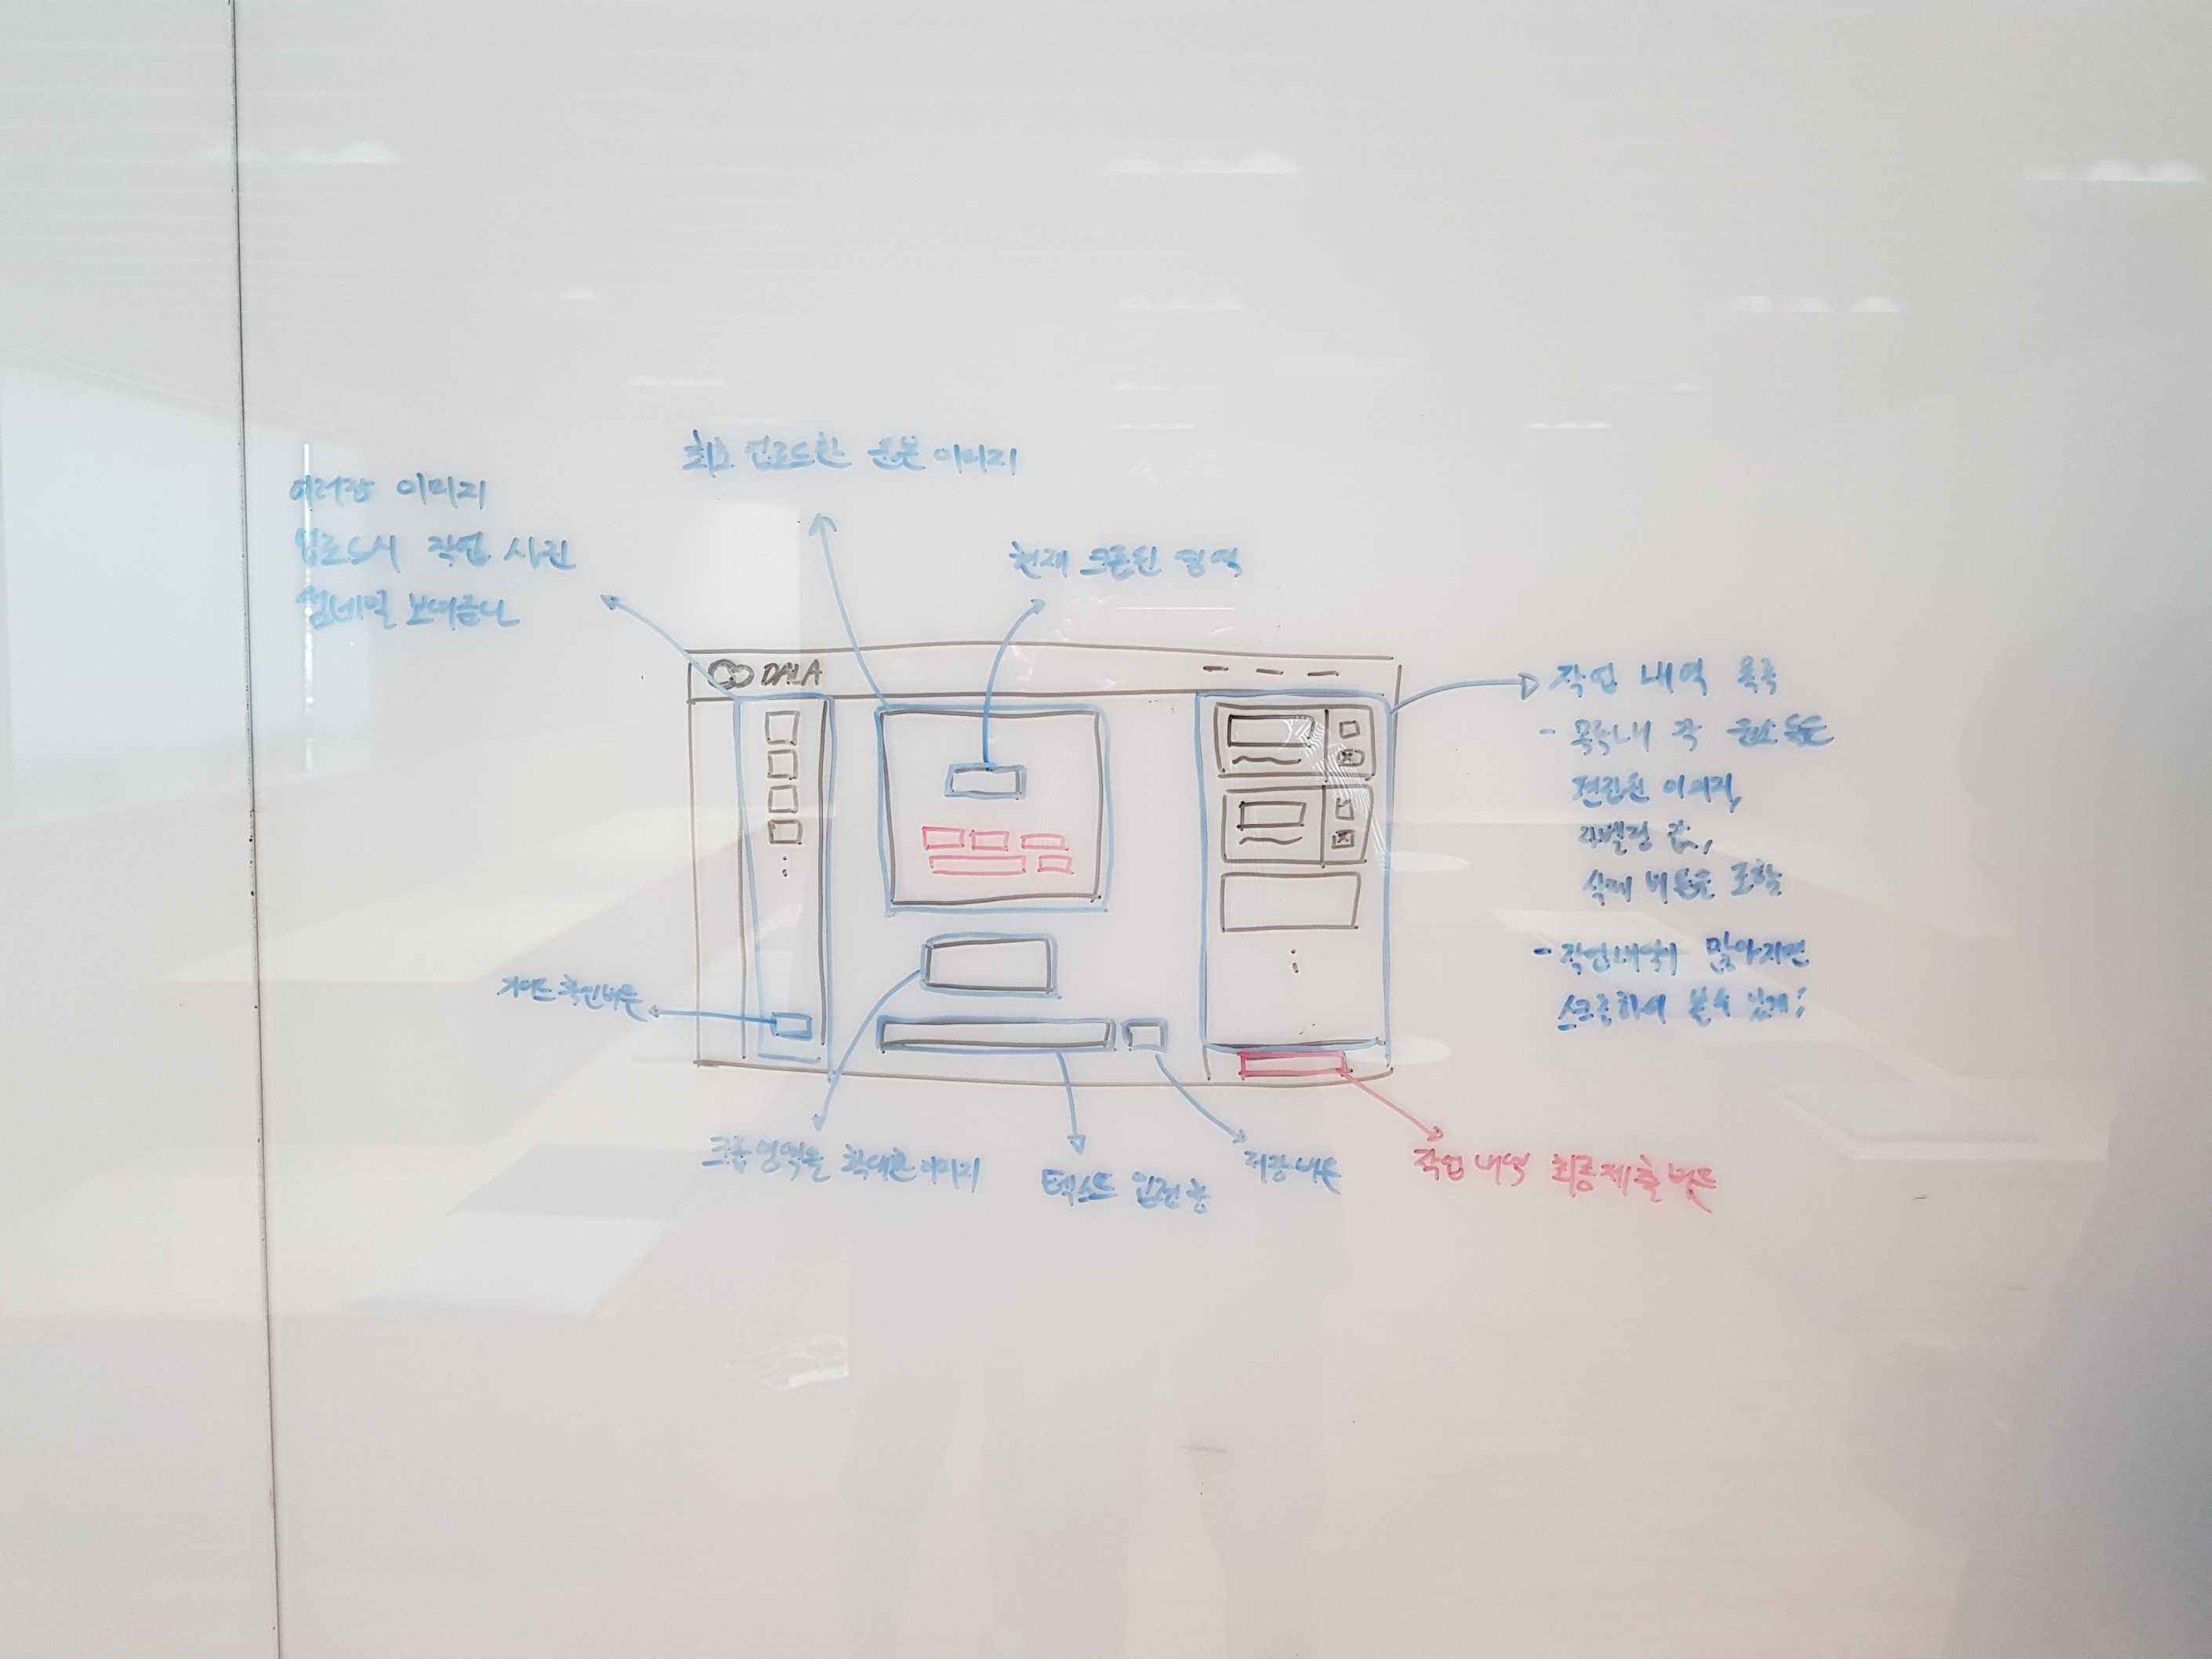 최초 업로드한 원본 이미지
여러장 이미지
업로드시 작업 사진
썸네일 보여준다
현재 크롭된 영역
DATA
작업 내역 목록
- 목록내 각 원소들은
편집된 이미지,
라벨링 값,
삭제 버튼을 포함
- 작업내역이 많아지면
스크롤하여 볼 수 있게;
가이드 확인버튼
크롭영역을 확대한 이미지
텍스트 입력창
저장버튼
작업 내역 최종제출버튼